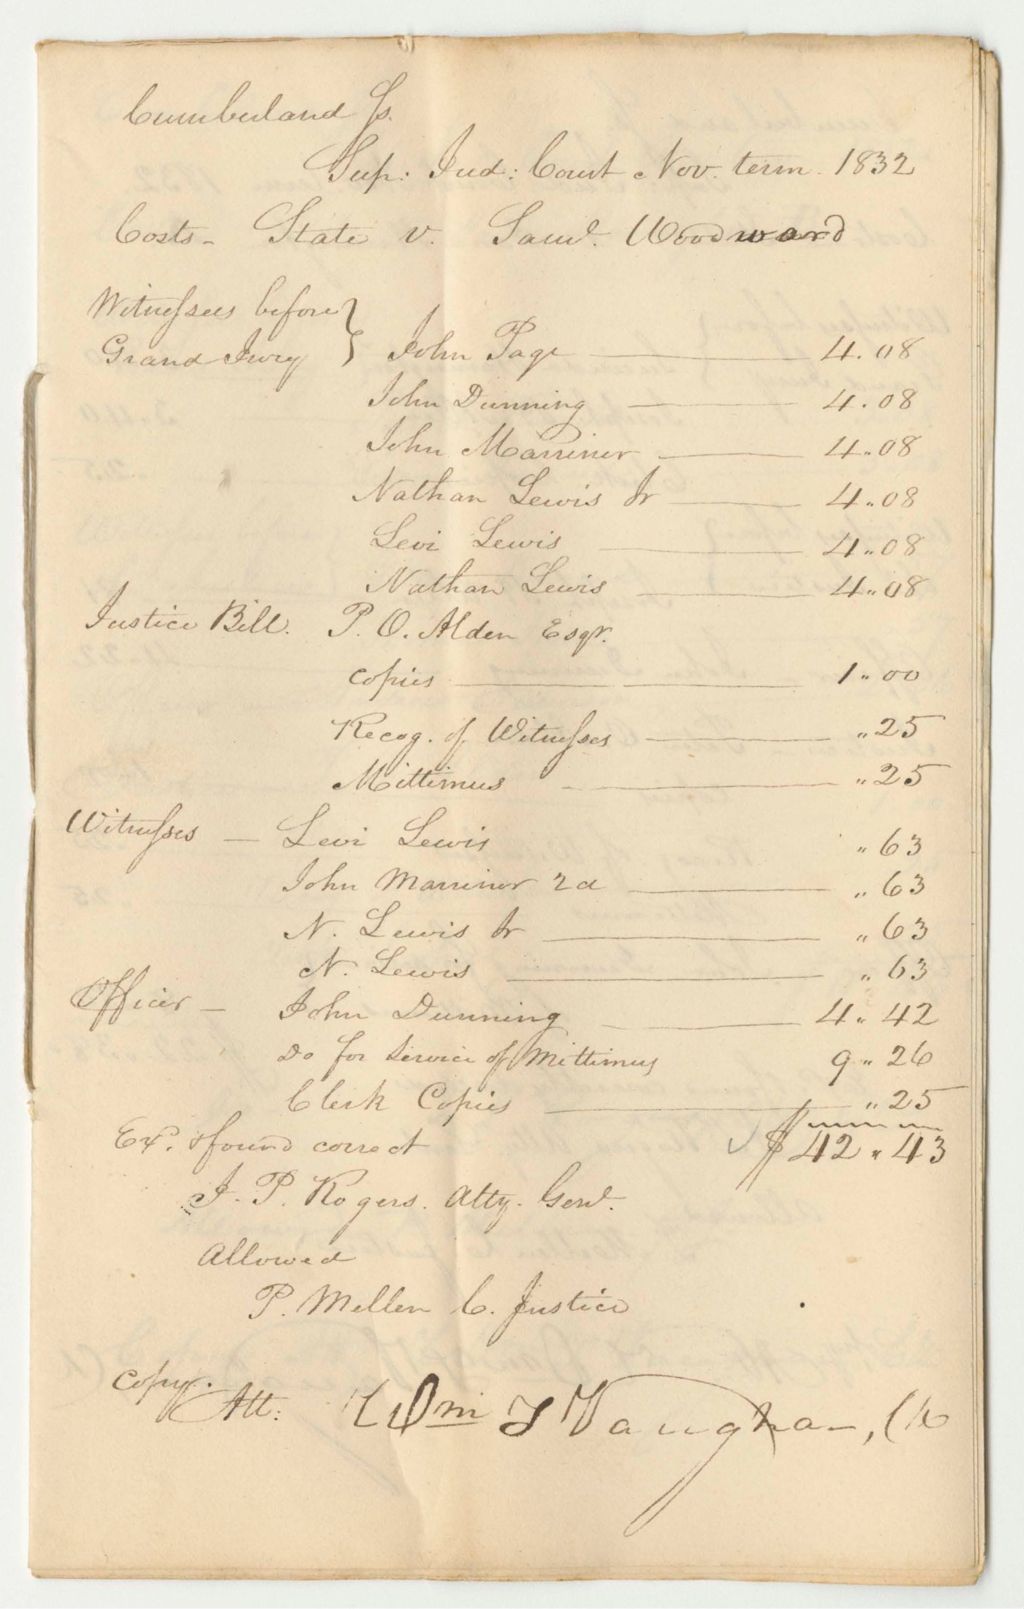 Cumberland Ss.
Sup: Jud: Court Nov. term. 1832
Costs - State v. Saml. Woodward
Witnesses before
Grand Jury } John Page 4.08
John Dunning 4.08
John Marriner 4.08
Nathan Lewis Jr 4.08
Levi Lewis 4.08
Nathan Lewis 4.08
Justice Bill. P. O. Alden Esqr.
copies 1.00
Recog. of Witnesses .25
Mittimus .25
Witnesses - Levi Lewis .63
John Marriner 2d .63
N. Lewis Jr .63
N. Lewis .63
Officer - John Dunning 4.42
Do for service of Mittimus 9.26
Clerk Copies .25
Ex. & found correct $42.43
J. P. Rogers. Atty. Genl.
Allowed
P. Mellen C. Justice
Copy.
Att: Wm T Vaughan, Clk